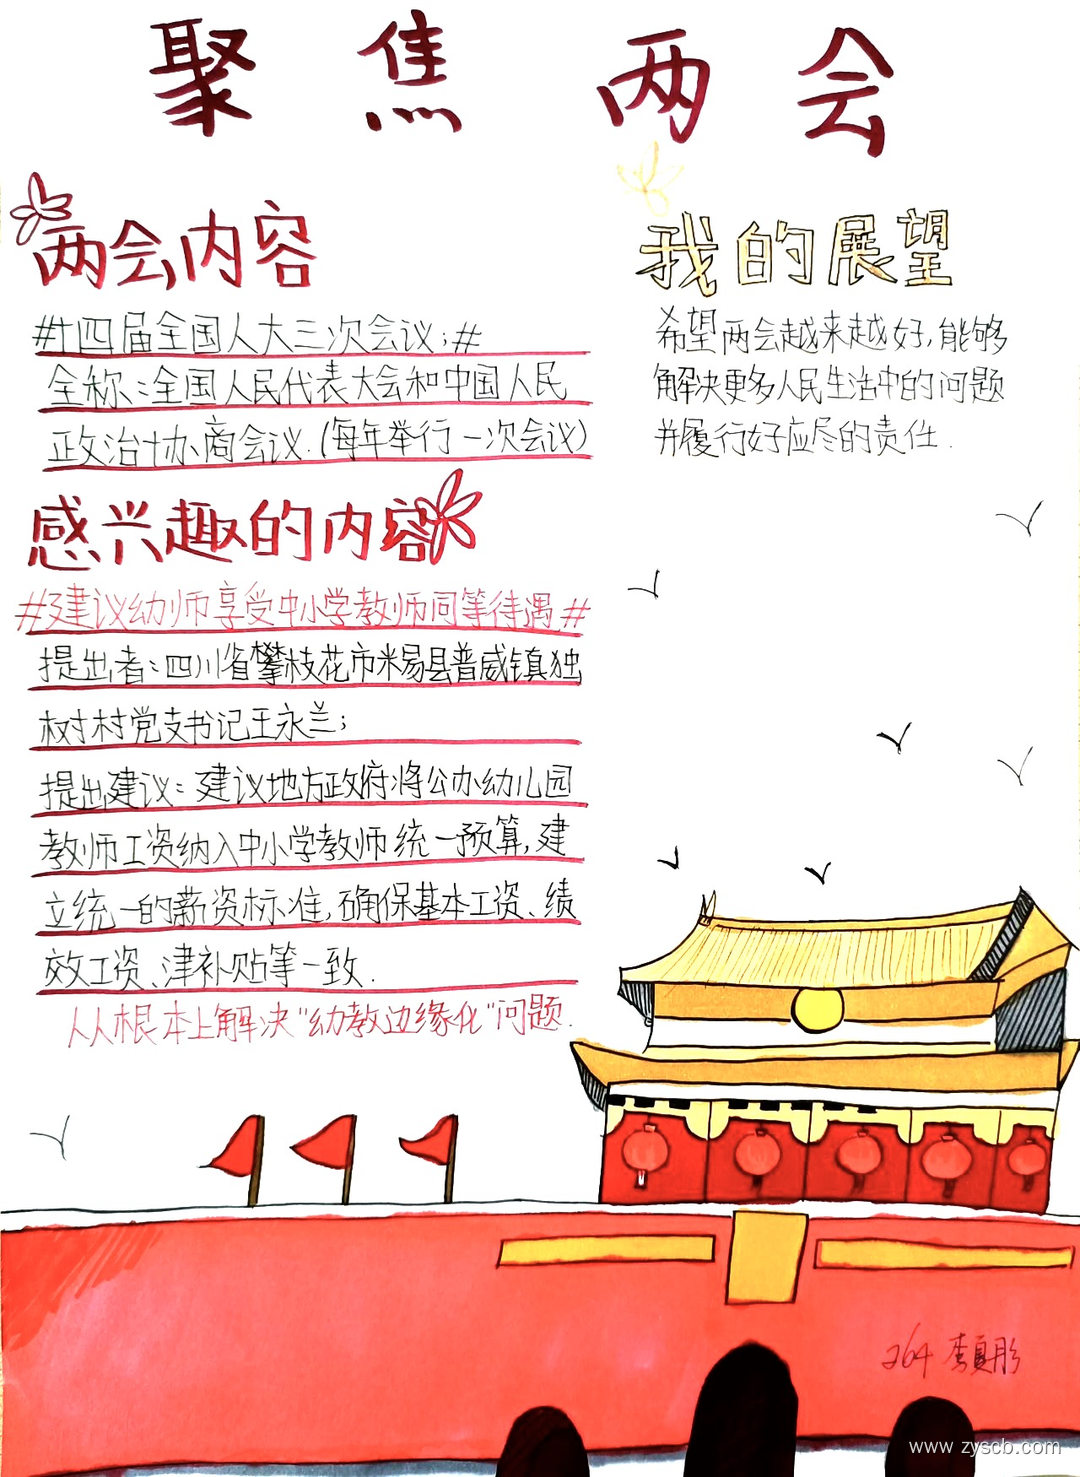 聚焦两会
两会内容
#十四届全国人大三次会议;#
全称:全国人民代表大会和中国人民
政治协商会议.(每年举行一次会议)
感兴趣的内容
#建议幼师享受中小学教师同等待遇#
提出者:四川省攀枝花市米易县普威镇独
树村党支书记王永兰;
提出建议:建议地方政府将公办幼儿园
教师工资纳入中小学教师统一预算,建
立统一的薪资标准,确保基本工资、绩
效工资、津补贴等一致.
从根本上解决"幼教边缘化"问题.
我的展望
希望两会越来越好,能够
解决更多人民生活中的问题
并履行好应尽的责任.
264 李夏彤
www.zyscb.com